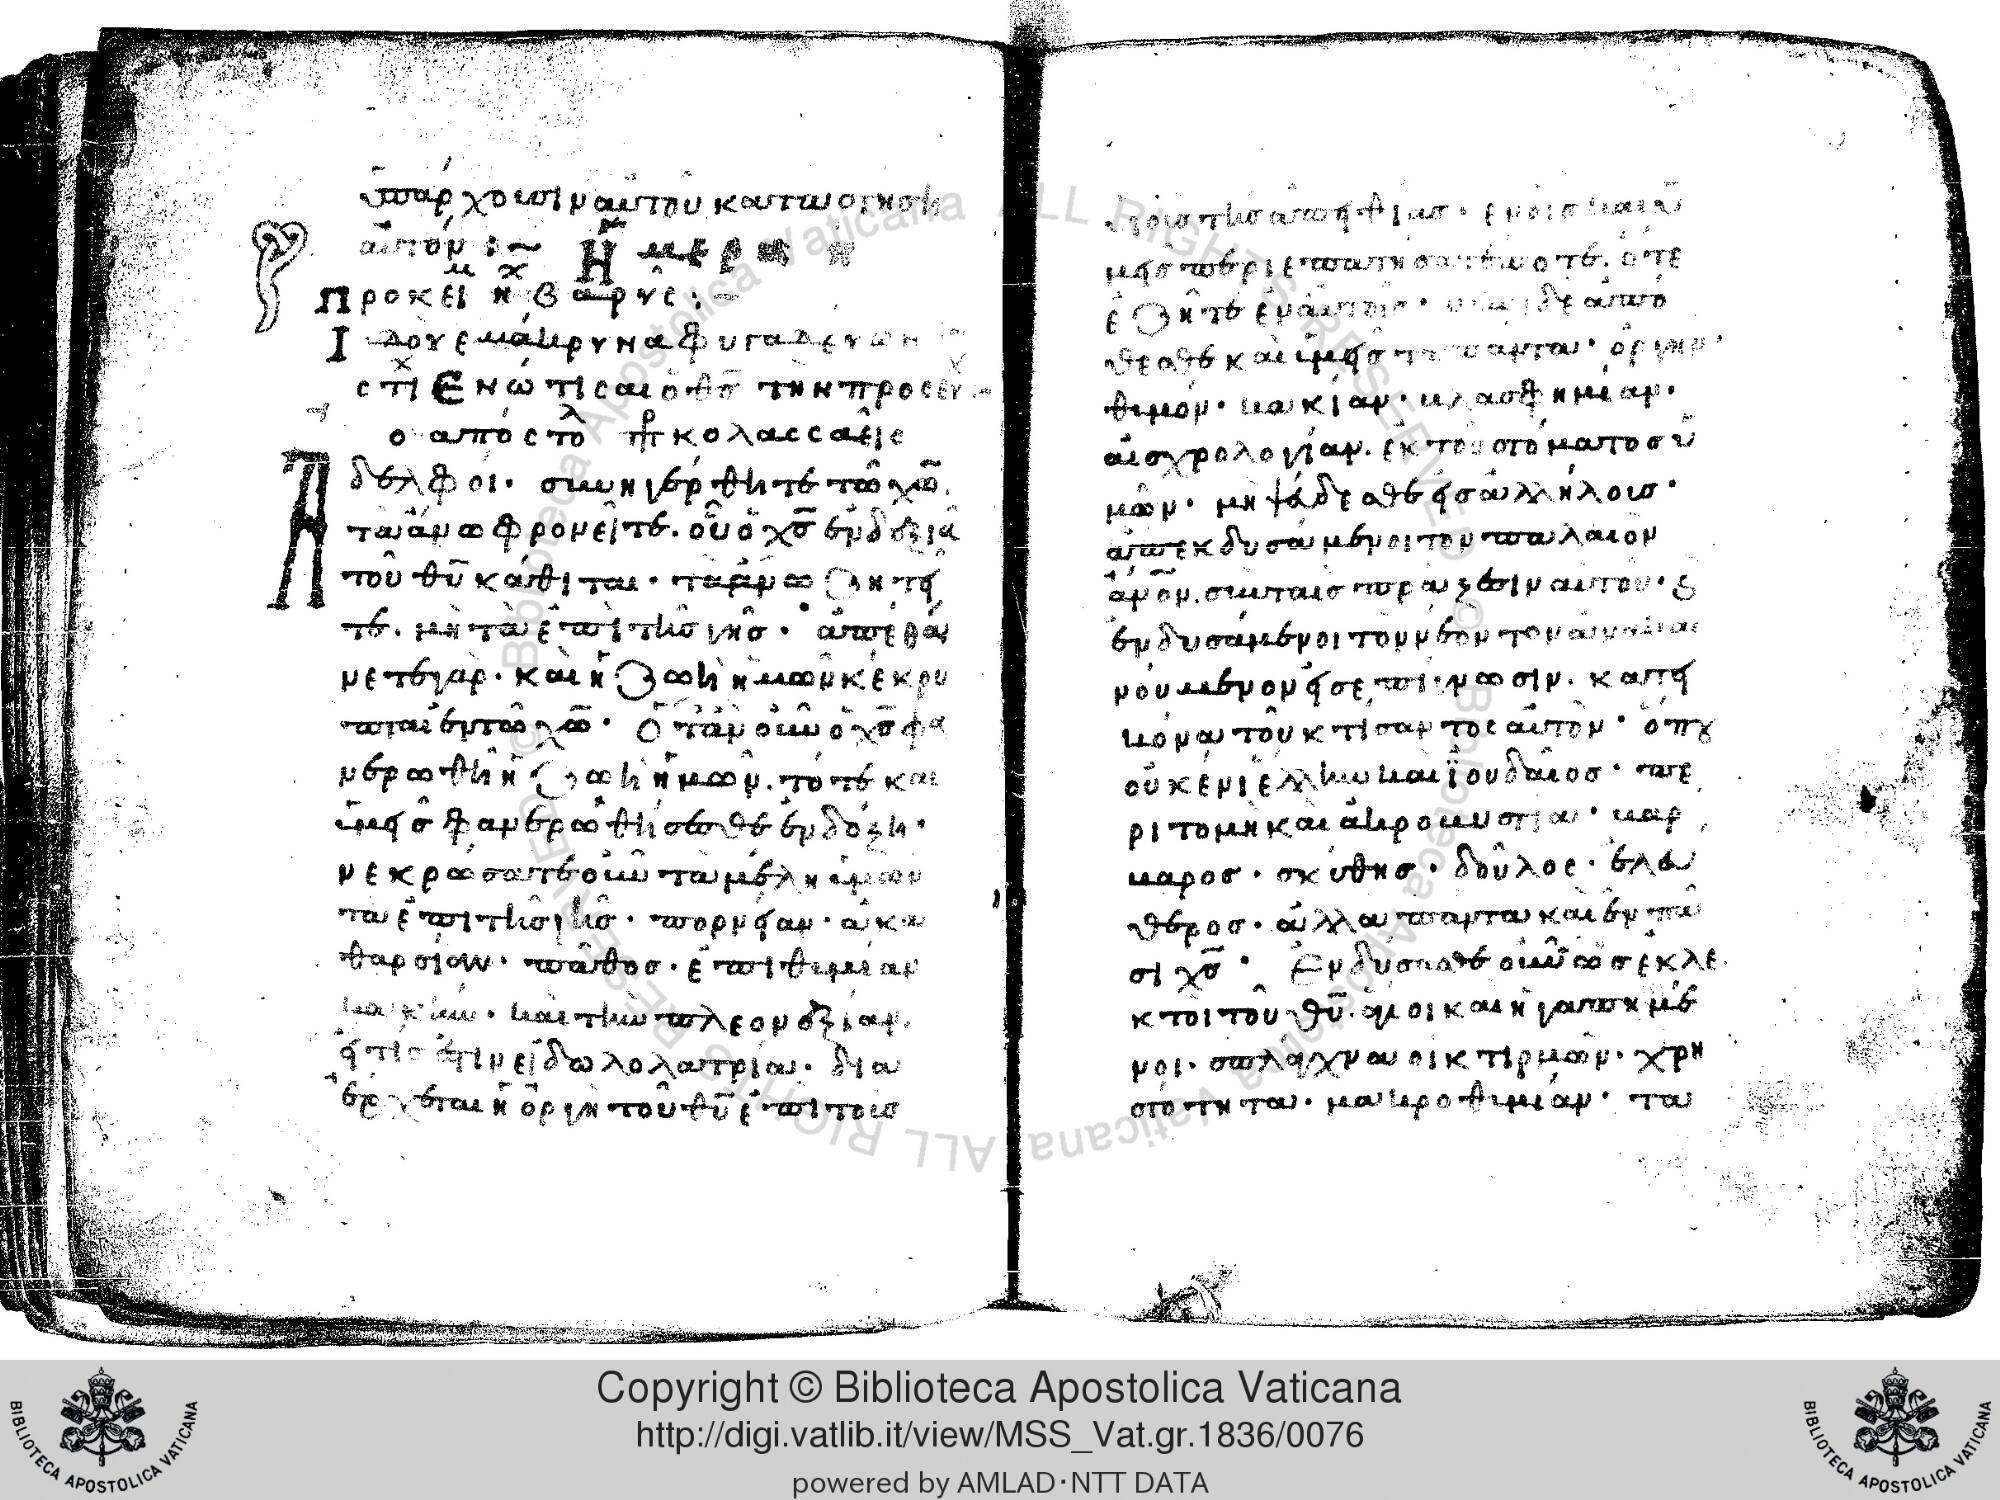 ὑπάρχουσιν αὐτοῦ κατανοήση
αὐτόν
προκεί ἦ βαρύς
Ἰδοὺ ἐμάκρυνα φυγαδεύων
στί Ἐνώτισαι ὁ θς την προσευ
ὁ ἀποστο πρ κολασσαεῖς
Αδελφοι· συνηγέρθητε τῶ χῶ.
τὰ ἄνω φρονεῖτε. οὗ ὁ χς ἐν δεξιᾶ
τοῦ θυ κάθιται· τὰ ἄνω ζητεῖ
τε. μὴ τὰ ἐπὶ τῆς γῆς· ἀπεθά
νετε γὰρ· καὶ ἡ ζωὴ ἡμῶν κέκρυ
πται ἐν τῶ χω· Ὅταν οὖν ὁ χς φα
νερωθῆ ἡ ζωὴ ἡμῶν. τότε και
ὑμεῖς φανερωθήσεσθε ἐν δόξη·
νεκρώσατε οὖν τὰ μέλη ὑμῶν
τὰ ἐπὶ τῆς γῆς· πορνείαν· ἀκα
θαρσίαν· πάθος· ἐπιθυμίαν
κακὴν· καὶ τὴν πλεονεξίαν.
ἥτις ἐστὶν εἰδωλολατρία· δι ἃ
ἔρχεται ἡ ὀργὴ τοῦ θυ ἐπὶ τοὺς
υἱοὺς τῆς ἀπειθίας· ἐν οἷς καὶ ὑ
μεῖς περιεπατήσατέ ποτε. ὅτε
ἐζῆτε ἐν αὐτοῖς· νυνὶ δὲ ἀπό
θεσθε καὶ ὑμεῖς τὰ πάντα· ὀργὴν·
θυμόν· κακίαν· βλασφημίαν·
αἰσχρολογίαν. ἐκ τοῦ στόματος ὑ
μῶν· μὴ ψεύδεσθε εἰς ἀλλήλους·
ἀπεκδυσάμενοι τὸν παλαιὸν
ἄνον. σὺν ταῖς πράξεσιν αὐτοῦ· καὶ
ἐνδυσάμενοι τὸν νέον τὸν ἀνακαι
νούμενον εἰς ἐπίγνωσιν. κατ' εἰ
κόνα τοῦ κτίσαντος αὐτὸν· ὅπου
οὐκ ἔνι ἕλλην καὶ ἰουδαῖος· πε
ριτομὴ καὶ ἀκροβυστία· βάρ
βαρος· σκύθης· δοῦλος· ἐλεύ
θερος· ἀλλὰ πάντα καὶ ἐν πᾶ
σι χς· Ἐνδύσασθε οὖν ὡς ἐκλε
κτοὶ τοῦ θυ. ἅγιοι καὶ ἠγαπημέ
νοι. σπλάγχνα οἰκτιρμῶν· χρη
στότητα· μακροθυμίαν· τα
Copyright © Biblioteca Apostolica Vaticana
http://digi.vatlib.it/view/MSS_Vat.gr.1836/0076
powered by AMLAD·NTT DATA